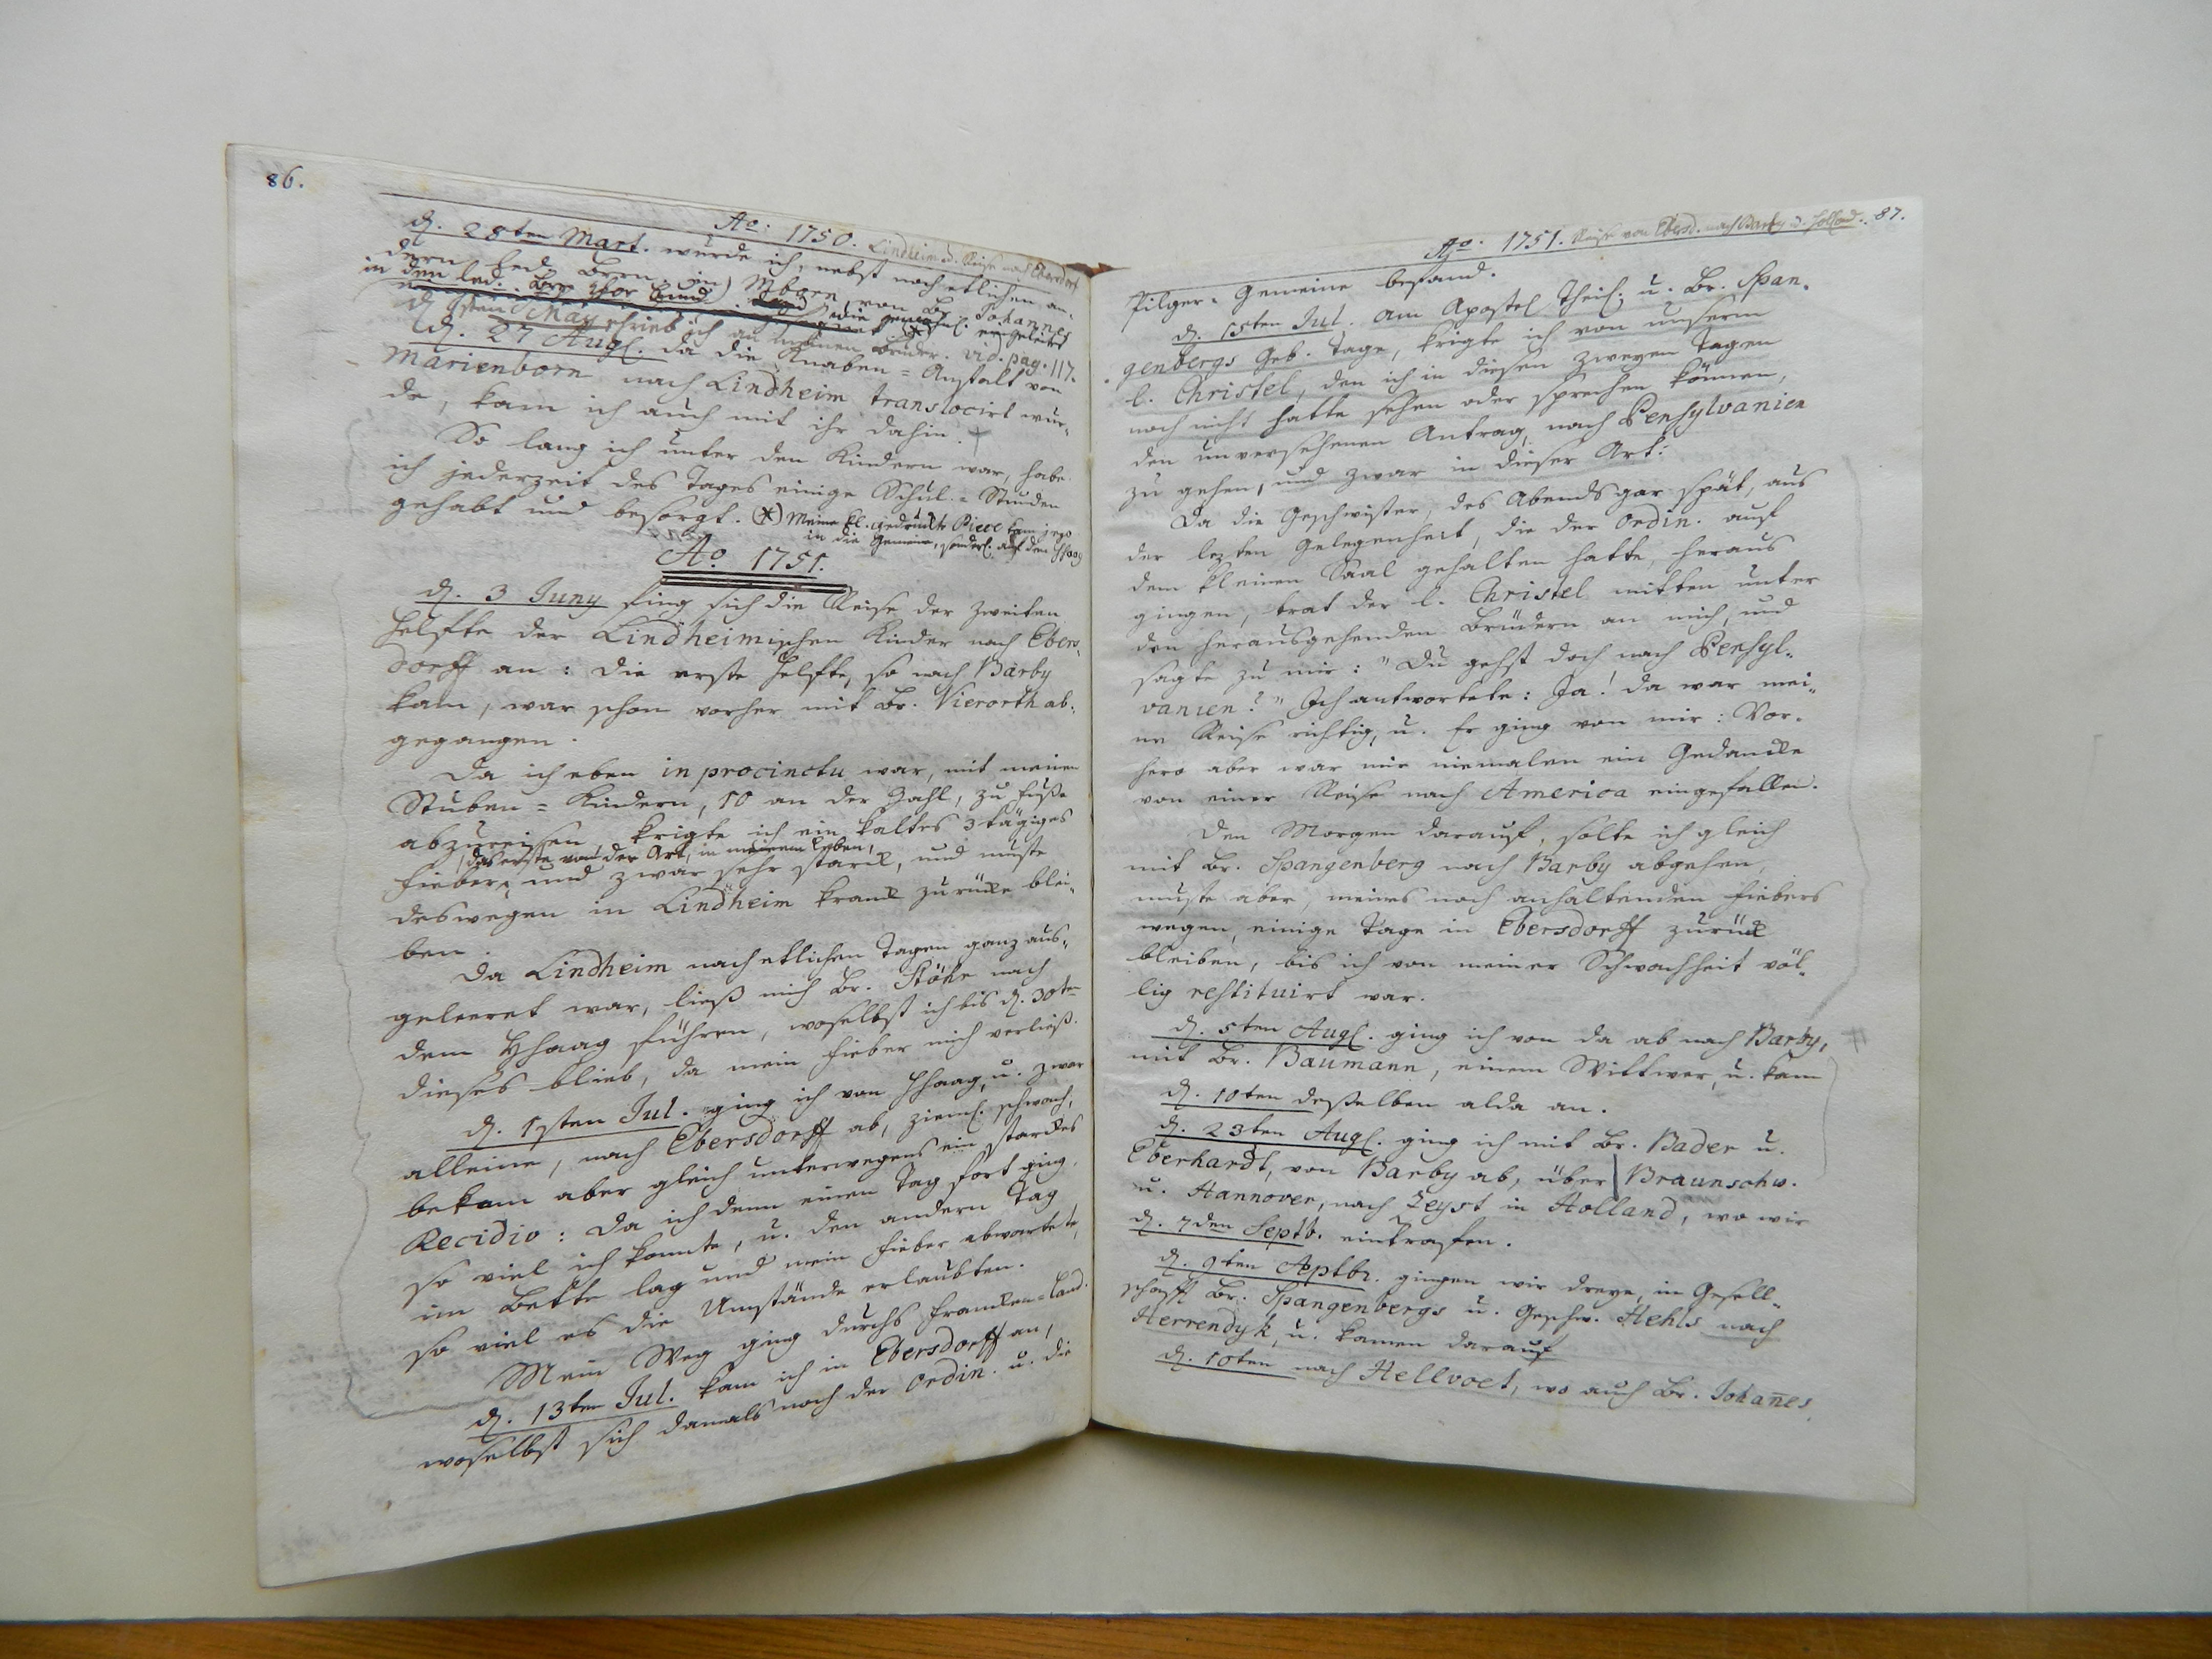 86.
Ao: 1750. Lindheim u. Reise nach Ebersdorf
d. 28ten Mart. wurde ich, nebst noch etlichen an-
dern led. Brn. in Mborn, von Br. Johannes
in den led. Brr Chor Bund eingeleitet
d. May schrieb ich an meinen Bruder. vid. pag. 117.
d. 27 Aug. da die Knaben=Anstalt von
Marienborn nach Lindheim translocirt wur-
de, kam ich auch mit ihr dahin.
So lang ich unter den Kindern war, habe
ich jederzeit des Tages einige Schul=Stunden
gehabt und besorgt. (*) Meine kl. gedruckte Piece kam jezo
in die Gemeine, sonderl. auf den Hhaag
Ao. 1751.
d. 3 Juny fing sich die Reise der zweiten
Helfte der Lindheimischen Kinder nach Ebers-
dorff an: die erste Helfte, so nach Barby
kam, war schon vorher mit Br. Vierorth ab-
gegangen.
Da ich eben in procinctu war, mit meinen
Stuben=Kindern, 10 an der Zahl, zu Fuße
abzureisen, krigte ich ein kaltes 3tägiges
das erste von der Art, in meinem Leben,
Fieber, und zwar sehr starck, und muste
deswegen in Lindheim kranck zurücke blei-
ben.
Da Lindheim nach etlichen Tagen ganz aus-
geleeret war, ließ mich Br. Stöhr nach
dem Hhaag führen, woselbst ich bis d. 30ten
dieses blieb, da mein Fieber mich verließ.
d. 1sten Jul. ging ich von Hhaag, u. zwar
alleine, nach Ebersdorff ab, zieml. schwach,
bekam aber gleich unterwegens ein starckes
Recidiv: da ich denn einen Tag fort ging,
so viel ich konnte, u. den andern Tag
im Bette lag und mein Fieber abwartete,
so viel es die Umstände erlaubten.
Mein Weg ging durchs Francken=Land.
d. 13ten Jul. kam ich in Ebersdorff an,
woselbst sich damals noch der Ordin. u. die
Ao. 1751. Reise von Ebersd. nach Barby u. Holland. 87.
Pilger=Gemeine befand.
d. 15ten Jul. am Apostel Theil. u. Br. Span-
genbergs Geb. Tage, krigte ich von unserm
l. Christel, den ich in diesen zweyen Tagen
noch nicht hatte sehen oder sprechen können,
den unversehenen Antrag, nach Pensylvanien
zu gehen, und zwar in dieser Art:
Da die Geschwister, des Abends gar spät, aus
der lezten Gelegenheit, die der Ordin. auf
dem kleinen Saal gehalten hatte, heraus
gingen, trat der l. Christel mitten unter
den herausgehenden Brüdern an mich, und
sagte zu mir: "Du gehst doch nach Pensyl-
vanien?" Ich antwortete: Ja! da war mei-
ne Reise richtig, u. Er ging von mir: Vor-
hero aber war mir niemalen ein Gedancke
von einer Reise nach America eingefallen.
Den Morgen darauf, solte ich gleich
mit Br. Spangenberg nach Barby abgehen,
muste aber, meines noch anhaltenden Fiebers
wegen, einige Tage in Ebersdorff zurück
bleiben, bis ich von meiner Schwachheit völ-
lig restituirt war.
d. 5ten Aug. ging ich von da ab nach Barby,
mit Br. Baumann, einem Wittwer, u. kam
d. 10ten desselben alda an.
d. 23ten Aug. ging ich mit Br. Bader u.
Eberhardt, von Barby ab, über Braunschw.
u. Hannover, nach Zeyst in Holland, wo wir
d. 7den Septb. eintrafen.
d. 9ten Septbr. gingen wir dreye, in Gesell-
schafft Br. Spangenbergs u. Geschw. Hehls nach
Herrendyk, u. kamen darauf
d. 10ten nach Hellvoet, wo auch Br. Johañes,